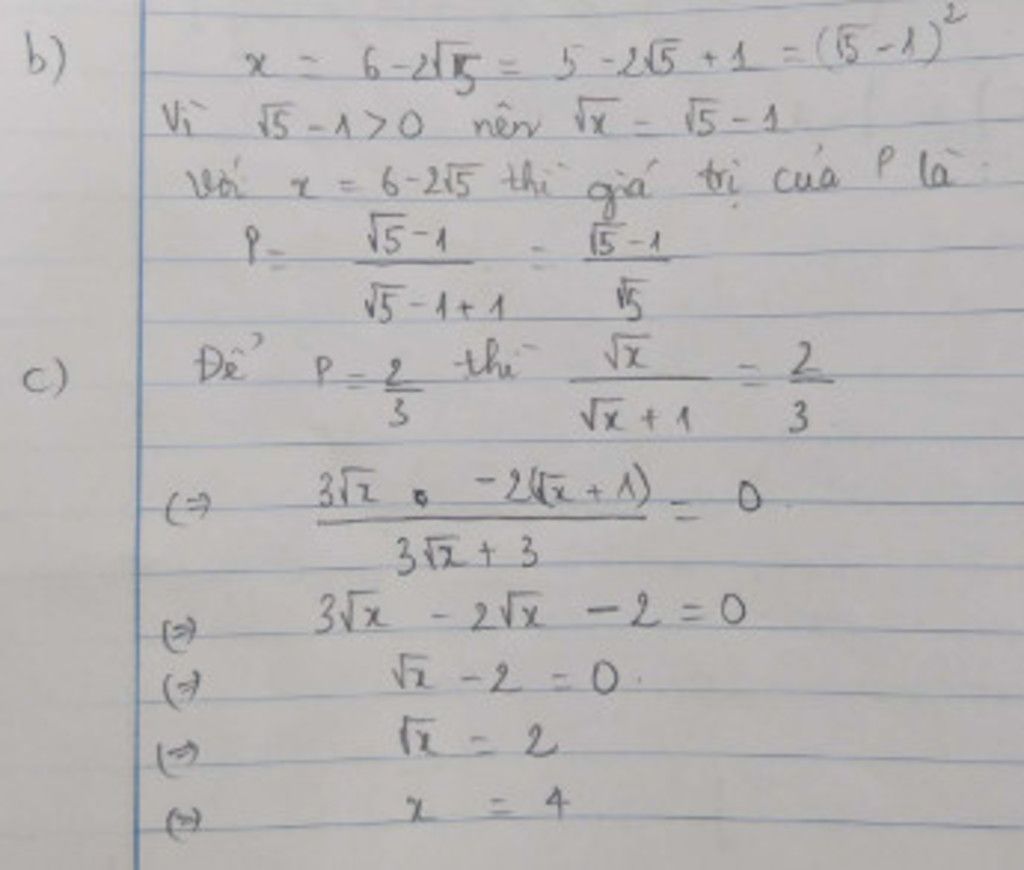 b) x = 6 - 2√5 = 5 - 2√5 + 1 = (√5 - 1)²
Vì √5 - 1 > 0 nên √x = √5 - 1
Với x = 6 - 2√5 thì giá trị của P là:
P = (√5 - 1)/(√5 - 1 + 1) = (√5 - 1)/√5
c) Để P = 2/3 thì √x/(√x + 1) = 2/3
(=) (3√x - 2(√x + 1))/(3√x + 3) = 0
(=) 3√x - 2√x - 2 = 0
(=) √x - 2 = 0
(=) √x = 2
(=) x = 4